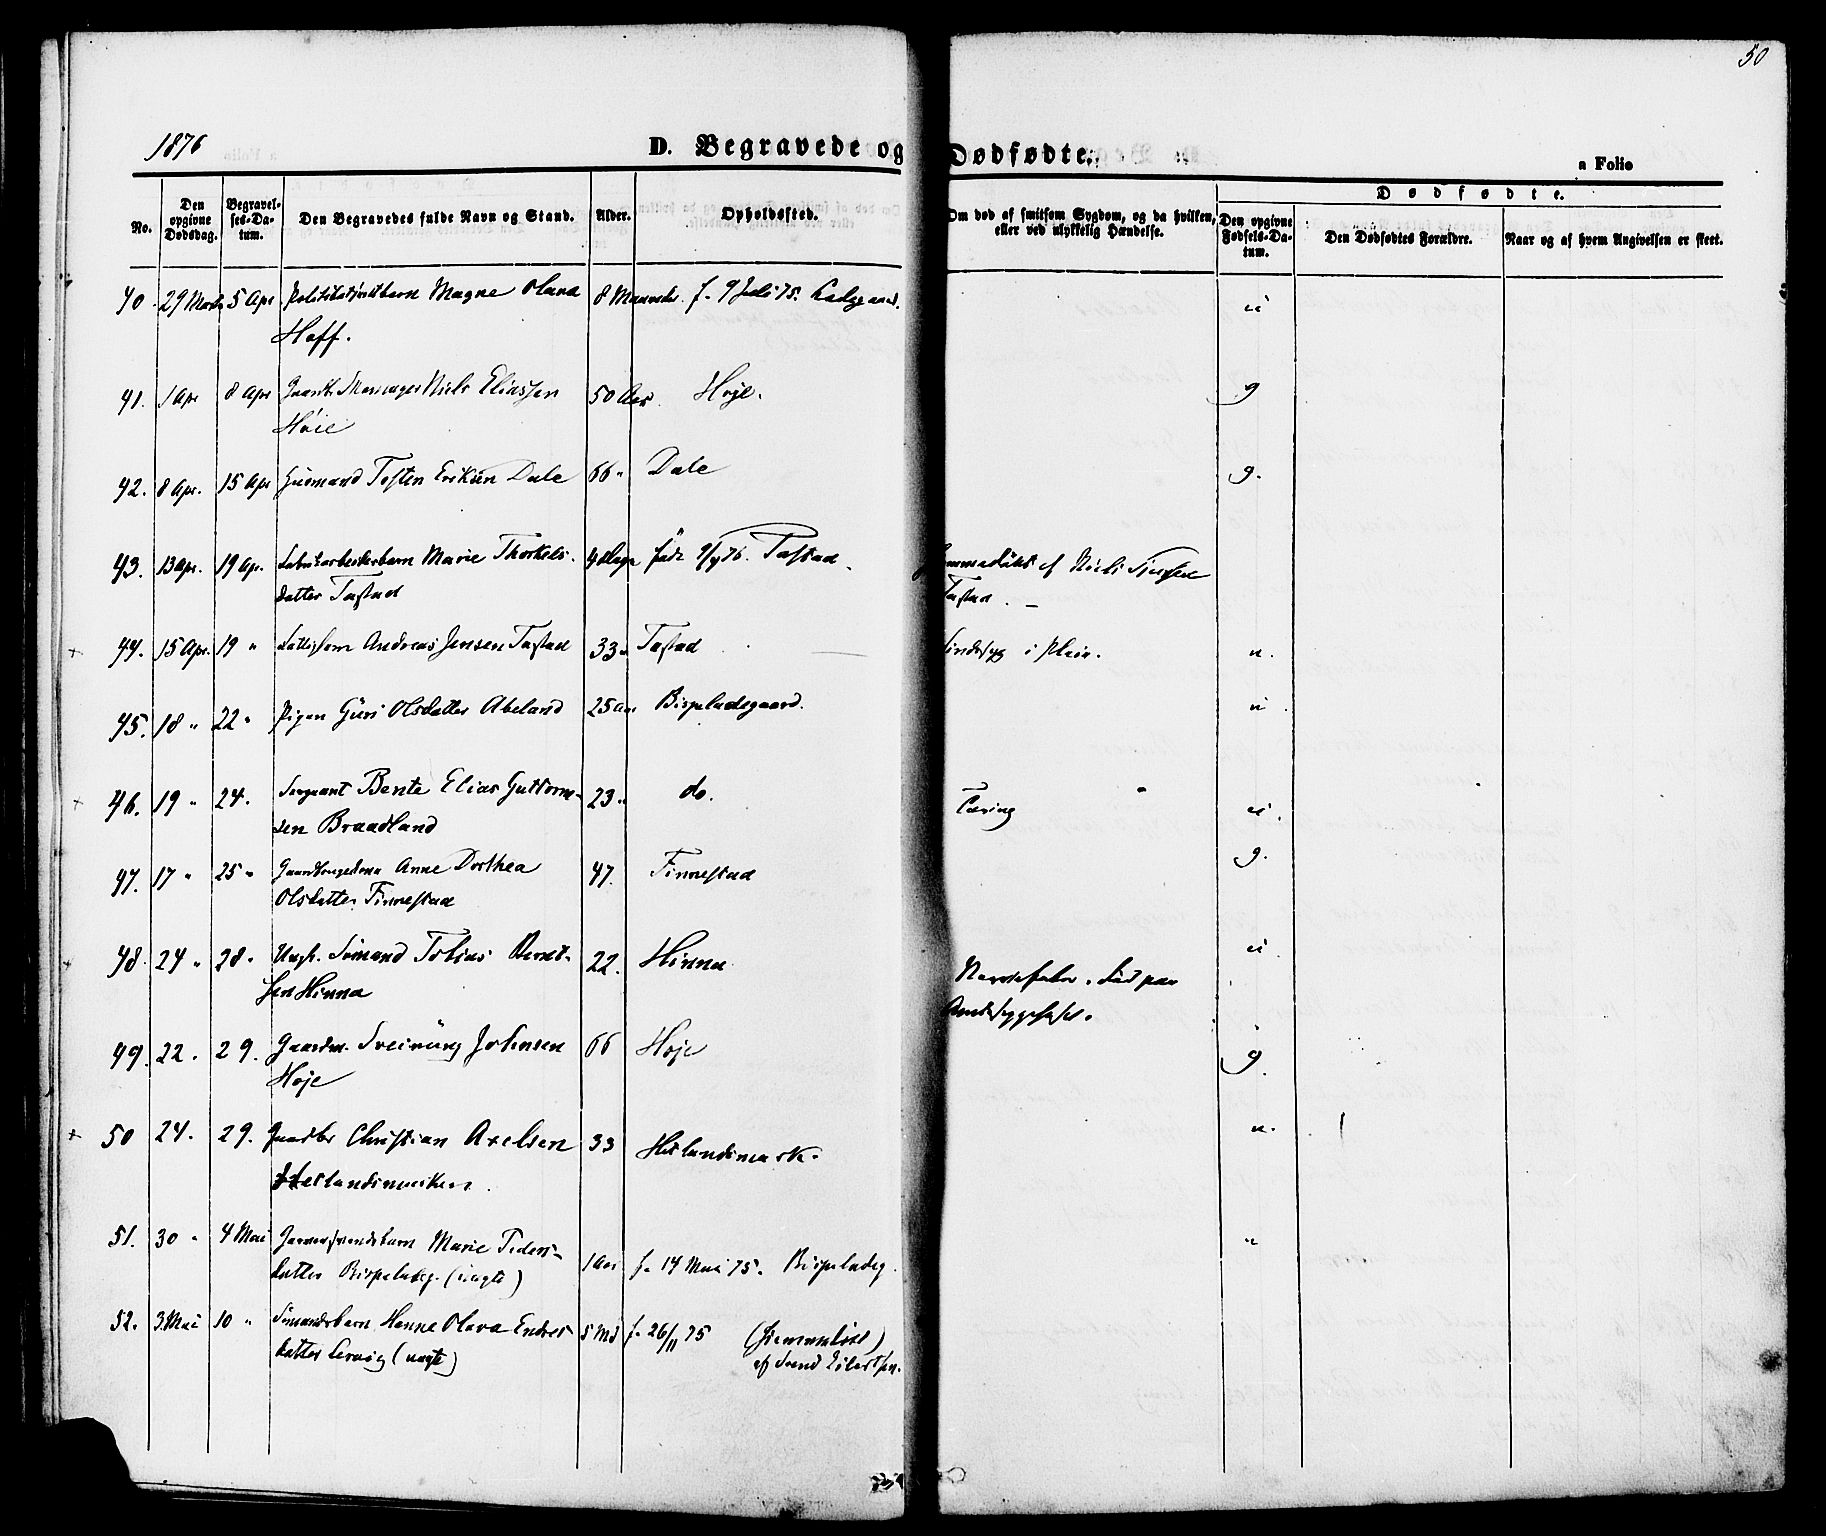 50
1876 D. Begravede og Dødfødte. a Folio
No. Den opgivne Dødsdag. Begravelses-Datum. Den Begravedes fulde Navn og Stand. Alder. Opholdssted. Om død af smitsom Sygdom, og da hvilken, eller ved ulykkelig Hændelse. Dødfødte. Den opgivne Fødsels-Datum. Den Dødfødtes Forældre. Naar og af hvem Angivelsen er skeet.
40. 29 Marts 5 Apr Magne Olava 8 Maaneder f. 9 Juli 75. Ladegaard. u
Hoff.
41. 1 Apr 8 Apr Niels Eliassen 50 Aar Høje. g
Høie
42. 8 Apr. 15 Apr Huusmand Tosten Eriksen Dale 66 " Dale g.
43. 13 Apr. 19 Apr. Fabrikarbeiderbarn Marie Thorkels- 4 Dage født 9/4 76. Tastad. Hjemmedøbt af Niels
datter Tastad Tastad. –
44. 15 Apr. 19 " Andreas Jensen Tastad 33 " Tastad Sindssyg i Pleie. u.
45. 18 " 22 " Pigen Guri Olsdatter Abeland 25 Aar Bispeladegaard. u.
46. 19 " 24. Sergeant Bente Elias Guttorm- 23 " do. Tæring u.
sen Braadland
47. 17 " 25 " Anne Dorthea 47. Finnestad g.
Olsdatter Finnestad
48. 24 " 28 " Ungk. Sømand Tobias Bernt- 22. Hinna Nervefeber. Død paa u
sen Hinna Amtssygehuset.
49. 22 " 29. Gaardm. Sveinung Johnsen 66 Høje g.
Høje
50 24. 29. Christian Axelsen 33 Hetlandsmark. u.
Hetlandsmarken.
51. 30 " 4 Mai Marie Peders- 1 Aar f. 14 Mai 75. Bispeladeg. "
datter Bispeladeg. (uægte)
52. 3. Mai 10 " Sømandsbarn Hanne Olava Endres- 5 Md f. 26/11 75 (Hjemmedøbt)
datter Lervig (uægte) af Svend Eilertsen.